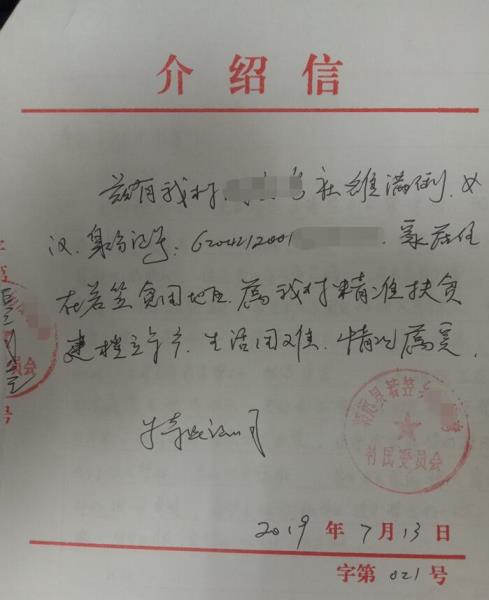 介绍信
兹有我村 社 满 女
汉.身份证号:6204212001 .家庭住
在若笠贫困地区.属我村精准扶贫
建档立卡户.生活困难.情况属实.
特此证明
靖远县若笠乡
村民委员会
2019年7月13日
字第021号